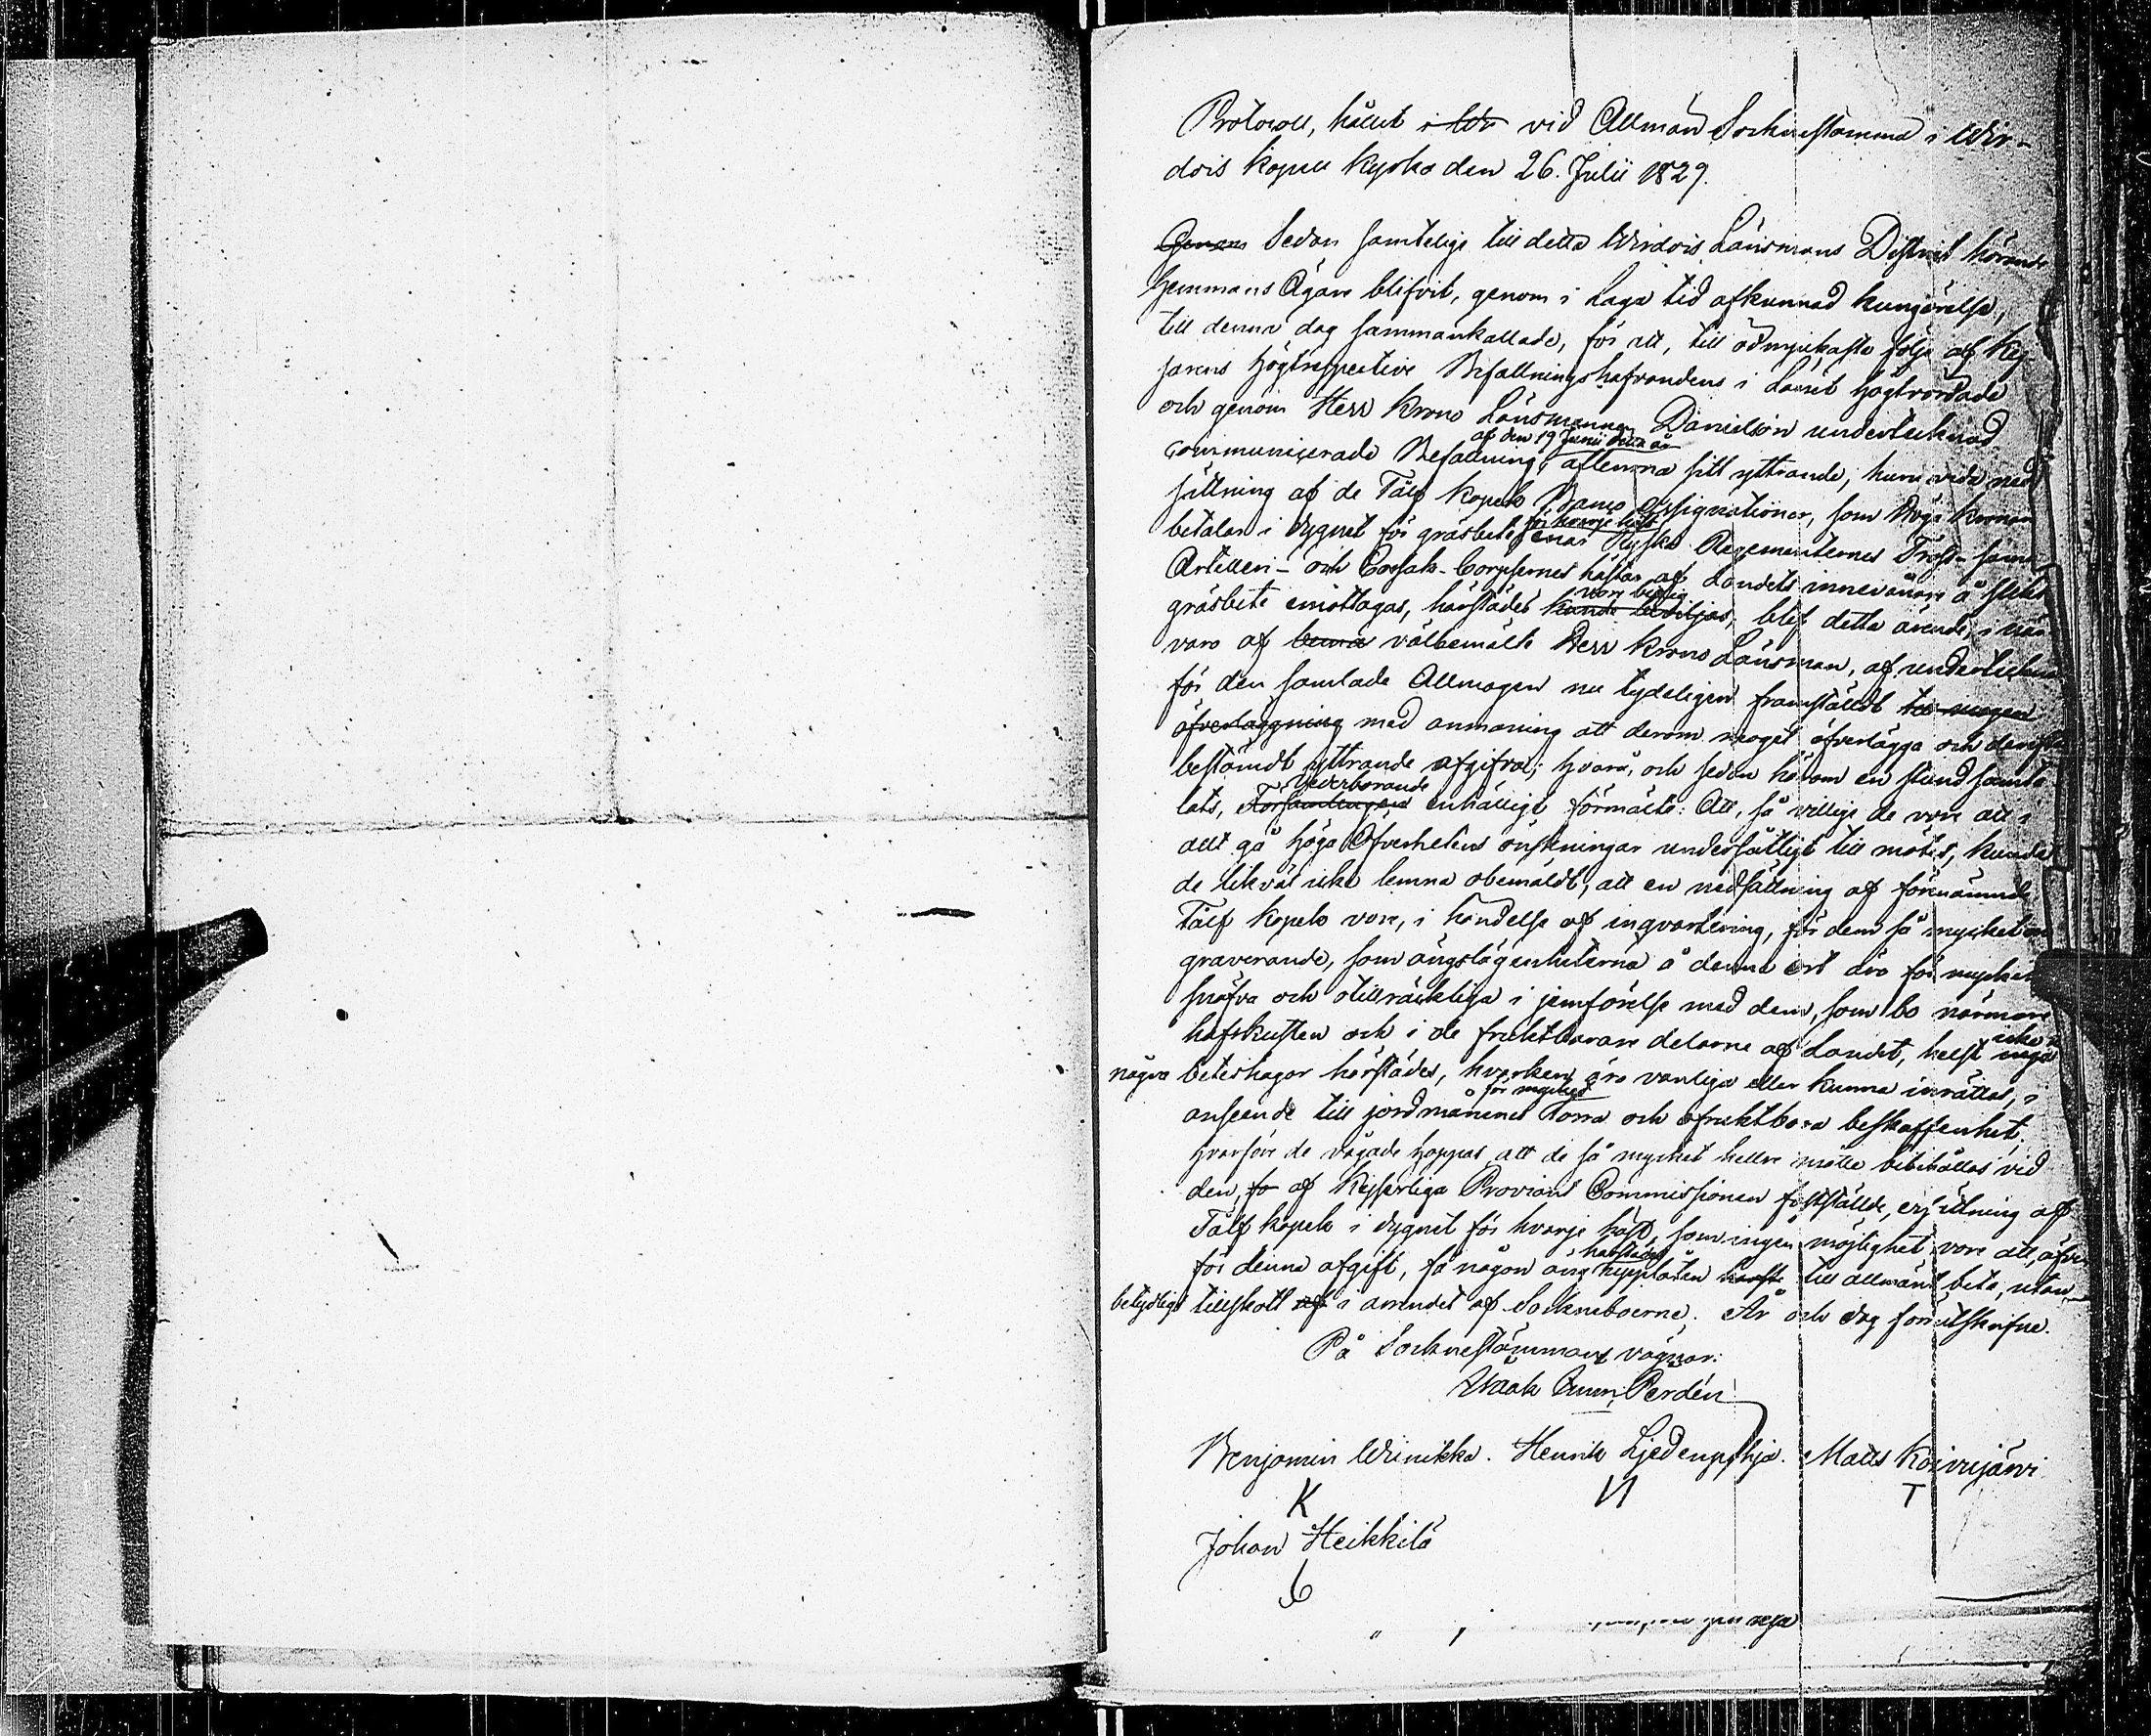 Protocoll, hållet i Wir vid Allmän Socknestämma i Wir-
dois kapell kyrka den 26. Julii 1829.
Genom Sedan samtelige till detta Wirdois Länsmans District hörande
Hemmans Ägare blifvit, genom i laga tid afkunnad kungörelse,
till denna dag sammankallade, för att, till ödmjukaste följe af Kej-
sarens Högtrespective Befallningshafvandens i Länet högtvördade
och genom Herr Krono Länsmannen Danielson undertecknad
communicerade Befallning af den 19 Junii detta år aflemna sitt yttrande, huruvida ned-
sättning af de Tålf kopek Banco Assignationer, som Höga Kronan
betalar i dygnet för gräsbete för hvarje häst, enär Ryska Regementernes Tross- samt
Artilleri- och Cosak-Corpsernes hästar af Landets innevånare å sådant
gräsbete emottagas, härstädes kunde beviljas vore billig, blef detta ärende, i när-
varo af bema välbemälte Herr Krono Länsman, af undertecknad
för den samlade Allmogen nu tydeligen framstäldt till mogen
öfverläggning med anmaning att derom moget öfverlägga och derefter
bestämdt yttrande afgifva; hvarå, och sedan härom en stund samta-
lats, Församlingen Vederbörande enhälligt förmälte: Att, så villige de vore att i
allt gå höga Öfverhetens önskningar undersåtligt till mötes, kunde
de likväl icke lemna obemäldt, att en nedsättning af förenämnde
Tålf kopek vore, i händelse af inqvartering, för dem så mycket mer
graverande, som ängslägenheterna å denna ort äro för mycket
snäfva och otillräckliga i jemförelse med dem, som bo närmare
hafskusten och i de fruktbarare delarne af Landet, helst inga icke
några beteshagar härstädes, hvarken äro vanliga eller kunna inrättas, i
anseende till jordmånens för mycket torra och ofruktbara beskaffenhet,
hvarföre de vågade hoppas att de så mycket hellre måtte bibehållas vid
den, fa af Kejserliga Proviant Commissionen fastställde, ersättning af
Tålf kopek i dygnet för hvarje häst, som ingen möjlighet vore att, äfven
för denna afgift, få någon äng härstädes upplåten till allmänt bete, utan
betydligt tillskott af i arendet af Sockneboerne. År och dag förutskrifne.
På Sockne stämmans vägnar:
Isaak Perdén
Benjamin Winikka. Henrik Matts Koivujärvi
K И T
Johan Heikkilä
6